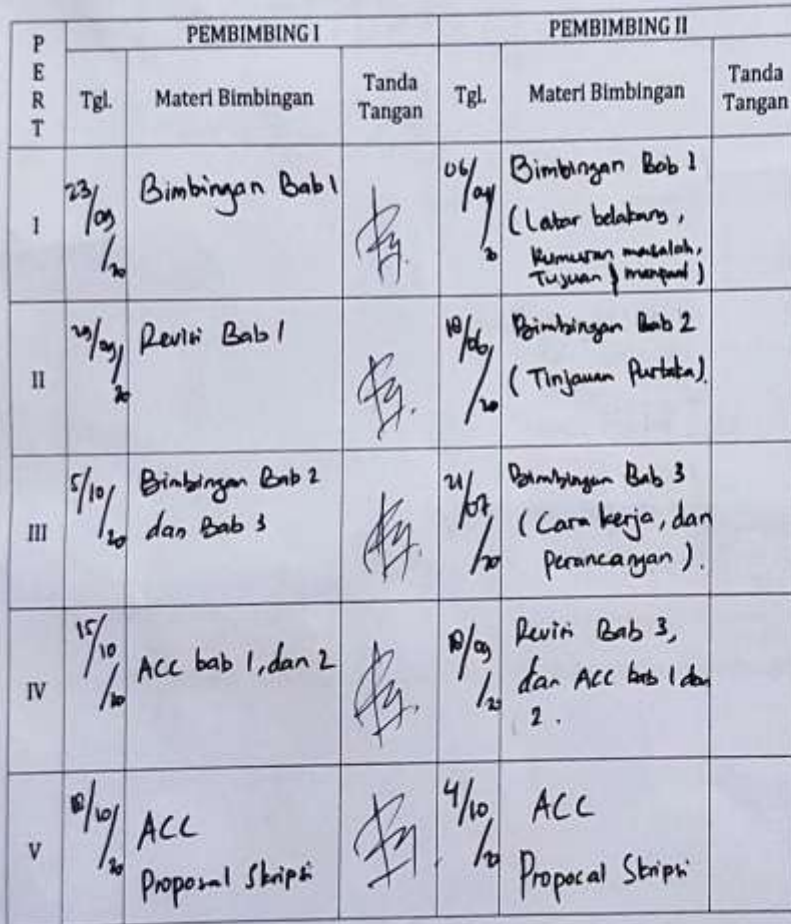 PERT
PEMBIMBING I
PEMBIMBING II
Tgl.
Materi Bimbingan
Tanda
Tangan
Tgl.
Materi Bimbingan
Tanda
Tangan
I
23/09/20
Bimbingan Bab 1
06/04/20
Bimbingan Bab 1
(Latar belakang,
Rumusan masalah,
Tujuan, manfaat)
II
29/09/20
Revisi Bab 1
18/06/20
Bimbingan Bab 2
(Tinjauan Pustaka).
III
5/10/20
Bimbingan Bab 2
dan Bab 3
21/07/20
Bimbingan Bab 3
(Cara kerja, dan
perancangan).
IV
15/10/20
ACC bab 1, dan 2
18/09/20
Revisi Bab 3,
dan ACC bab 1 dan
2.
V
18/10/20
ACC
Proposal Skripsi
4/10/20
ACC
Proposal Skripsi